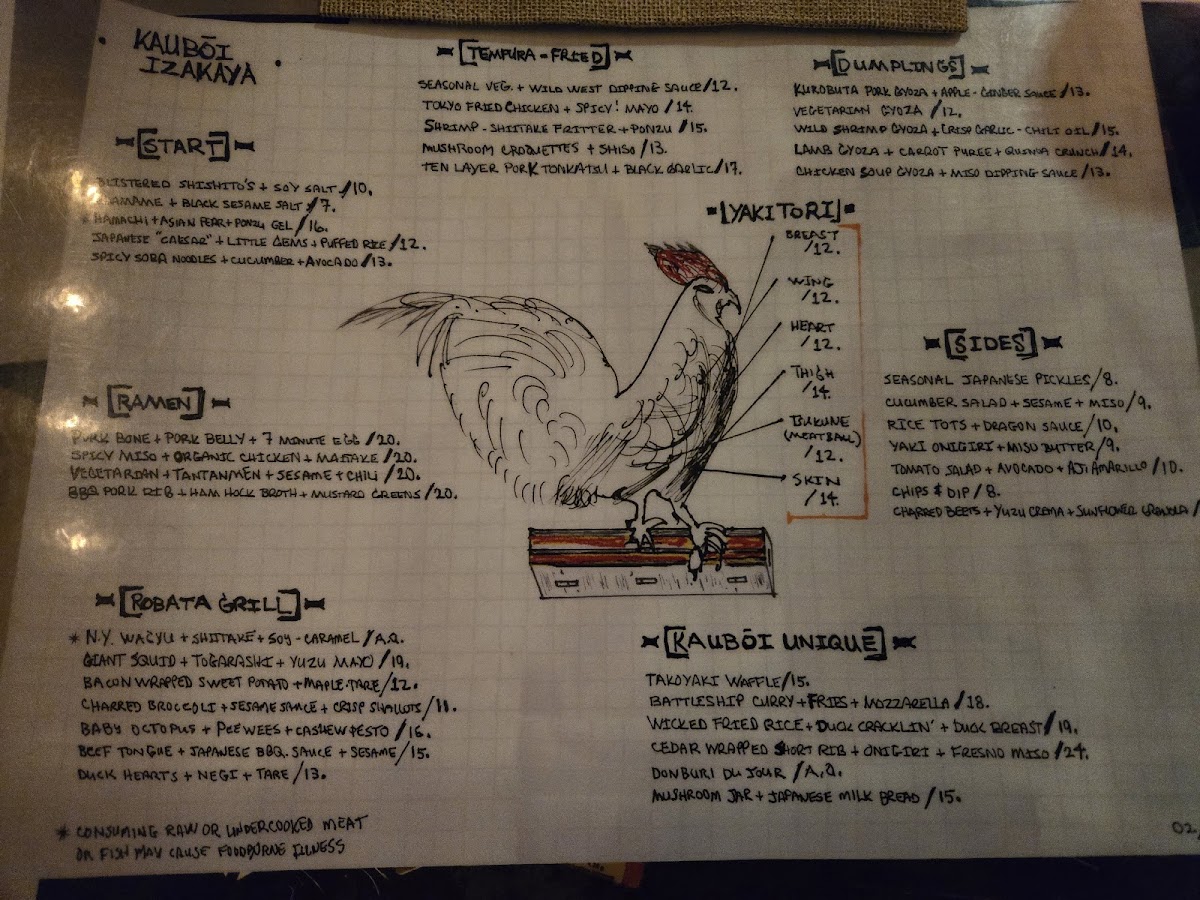 KAUBŌI
IZAKAYA
[START]
BLISTERED SHISHITO'S + SOY SALT /10.
EDAMAME + BLACK SESAME SALT /7.
* HAMACHI + ASIAN PEAR + PONZU GEL /16.
JAPANESE "CAESAR" + LITTLE GEMS + PUFFED RICE /12.
SPICY SOBA NOODLES + CUCUMBER + AVOCADO /13.
[TEMPURA-FRIED]
SEASONAL VEG. + WILD WEST DIPPING SAUCE /12.
TOKYO FRIED CHICKEN + SPICY! MAYO /14.
SHRIMP-SHIITAKE FRITTER + PONZU /15.
MUSHROOM CROQUETTES + SHISO /13.
TEN LAYER PORK TONKATSU + BLACK GARLIC /17.
[DUMPLINGS]
KUROBUTA PORK GYOZA + APPLE-GINGER SAUCE /13.
VEGETARIAN GYOZA /12.
WILD SHRIMP GYOZA + CRISP GARLIC-CHILI OIL /15.
LAMB GYOZA + CARROT PUREE + QUINOA CRUNCH /14.
CHICKEN SOUP GYOZA + MISO DIPPING SAUCE /13.
[YAKITORI]
BREAST
/12.
WING
/12.
HEART
/12.
THIGH
/14.
TSUKUNE
(MEATBALL)
/12.
SKIN
/14.
[SIDES]
SEASONAL JAPANESE PICKLES /8.
CUCUMBER SALAD + SESAME + MISO /9.
RICE TOTS + DRAGON SAUCE /10.
YAKI ONIGIRI + MISO BUTTER /9.
TOMATO SALAD + AVOCADO + AJI AMARILLO /10.
CHIPS & DIP /8.
CHARRED BEETS + YUZU CREMA + SUNFLOWER GRANOLA /
[RAMEN]
PORK BONE + PORK BELLY + 7 MINUTE EGG /20.
SPICY MISO + ORGANIC CHICKEN + MAITAKE /20.
VEGETARIAN + TANTANMEN + SESAME + CHILI /20.
BBQ PORK RIB + HAM HOCK BROTH + MUSTARD GREENS /20.
[ROBATA GRILL]
* N.Y. WAGYU + SHIITAKE + SOY-CARAMEL /A.Q.
GIANT SQUID + TOGARASHI + YUZU MAYO /19.
BACON WRAPPED SWEET POTATO + MAPLE-TARE /12.
CHARRED BROCCOLI + SESAME SAUCE + CRISP SHALLOTS /11.
BABY OCTOPUS + PEEWEES + CASHEW PESTO /16.
BEEF TONGUE + JAPANESE BBQ. SAUCE + SESAME /15.
DUCK HEARTS + NEGI + TARE /13.
[KAUBŌI UNIQUE]
TAKOYAKI WAFFLE /15.
BATTLESHIP CURRY + FRIES + MOZZARELLA /18.
WICKED FRIED RICE + DUCK CRACKLIN' + DUCK BREAST /19.
CEDAR WRAPPED SHORT RIB + ONIGIRI + FRESNO MISO /24.
DONBURI DU JOUR /A.Q.
MUSHROOM JAR + JAPANESE MILK BREAD /15.
* CONSUMING RAW OR UNDERCOOKED MEAT
OR FISH MAY CAUSE FOODBORNE ILLNESS
02.